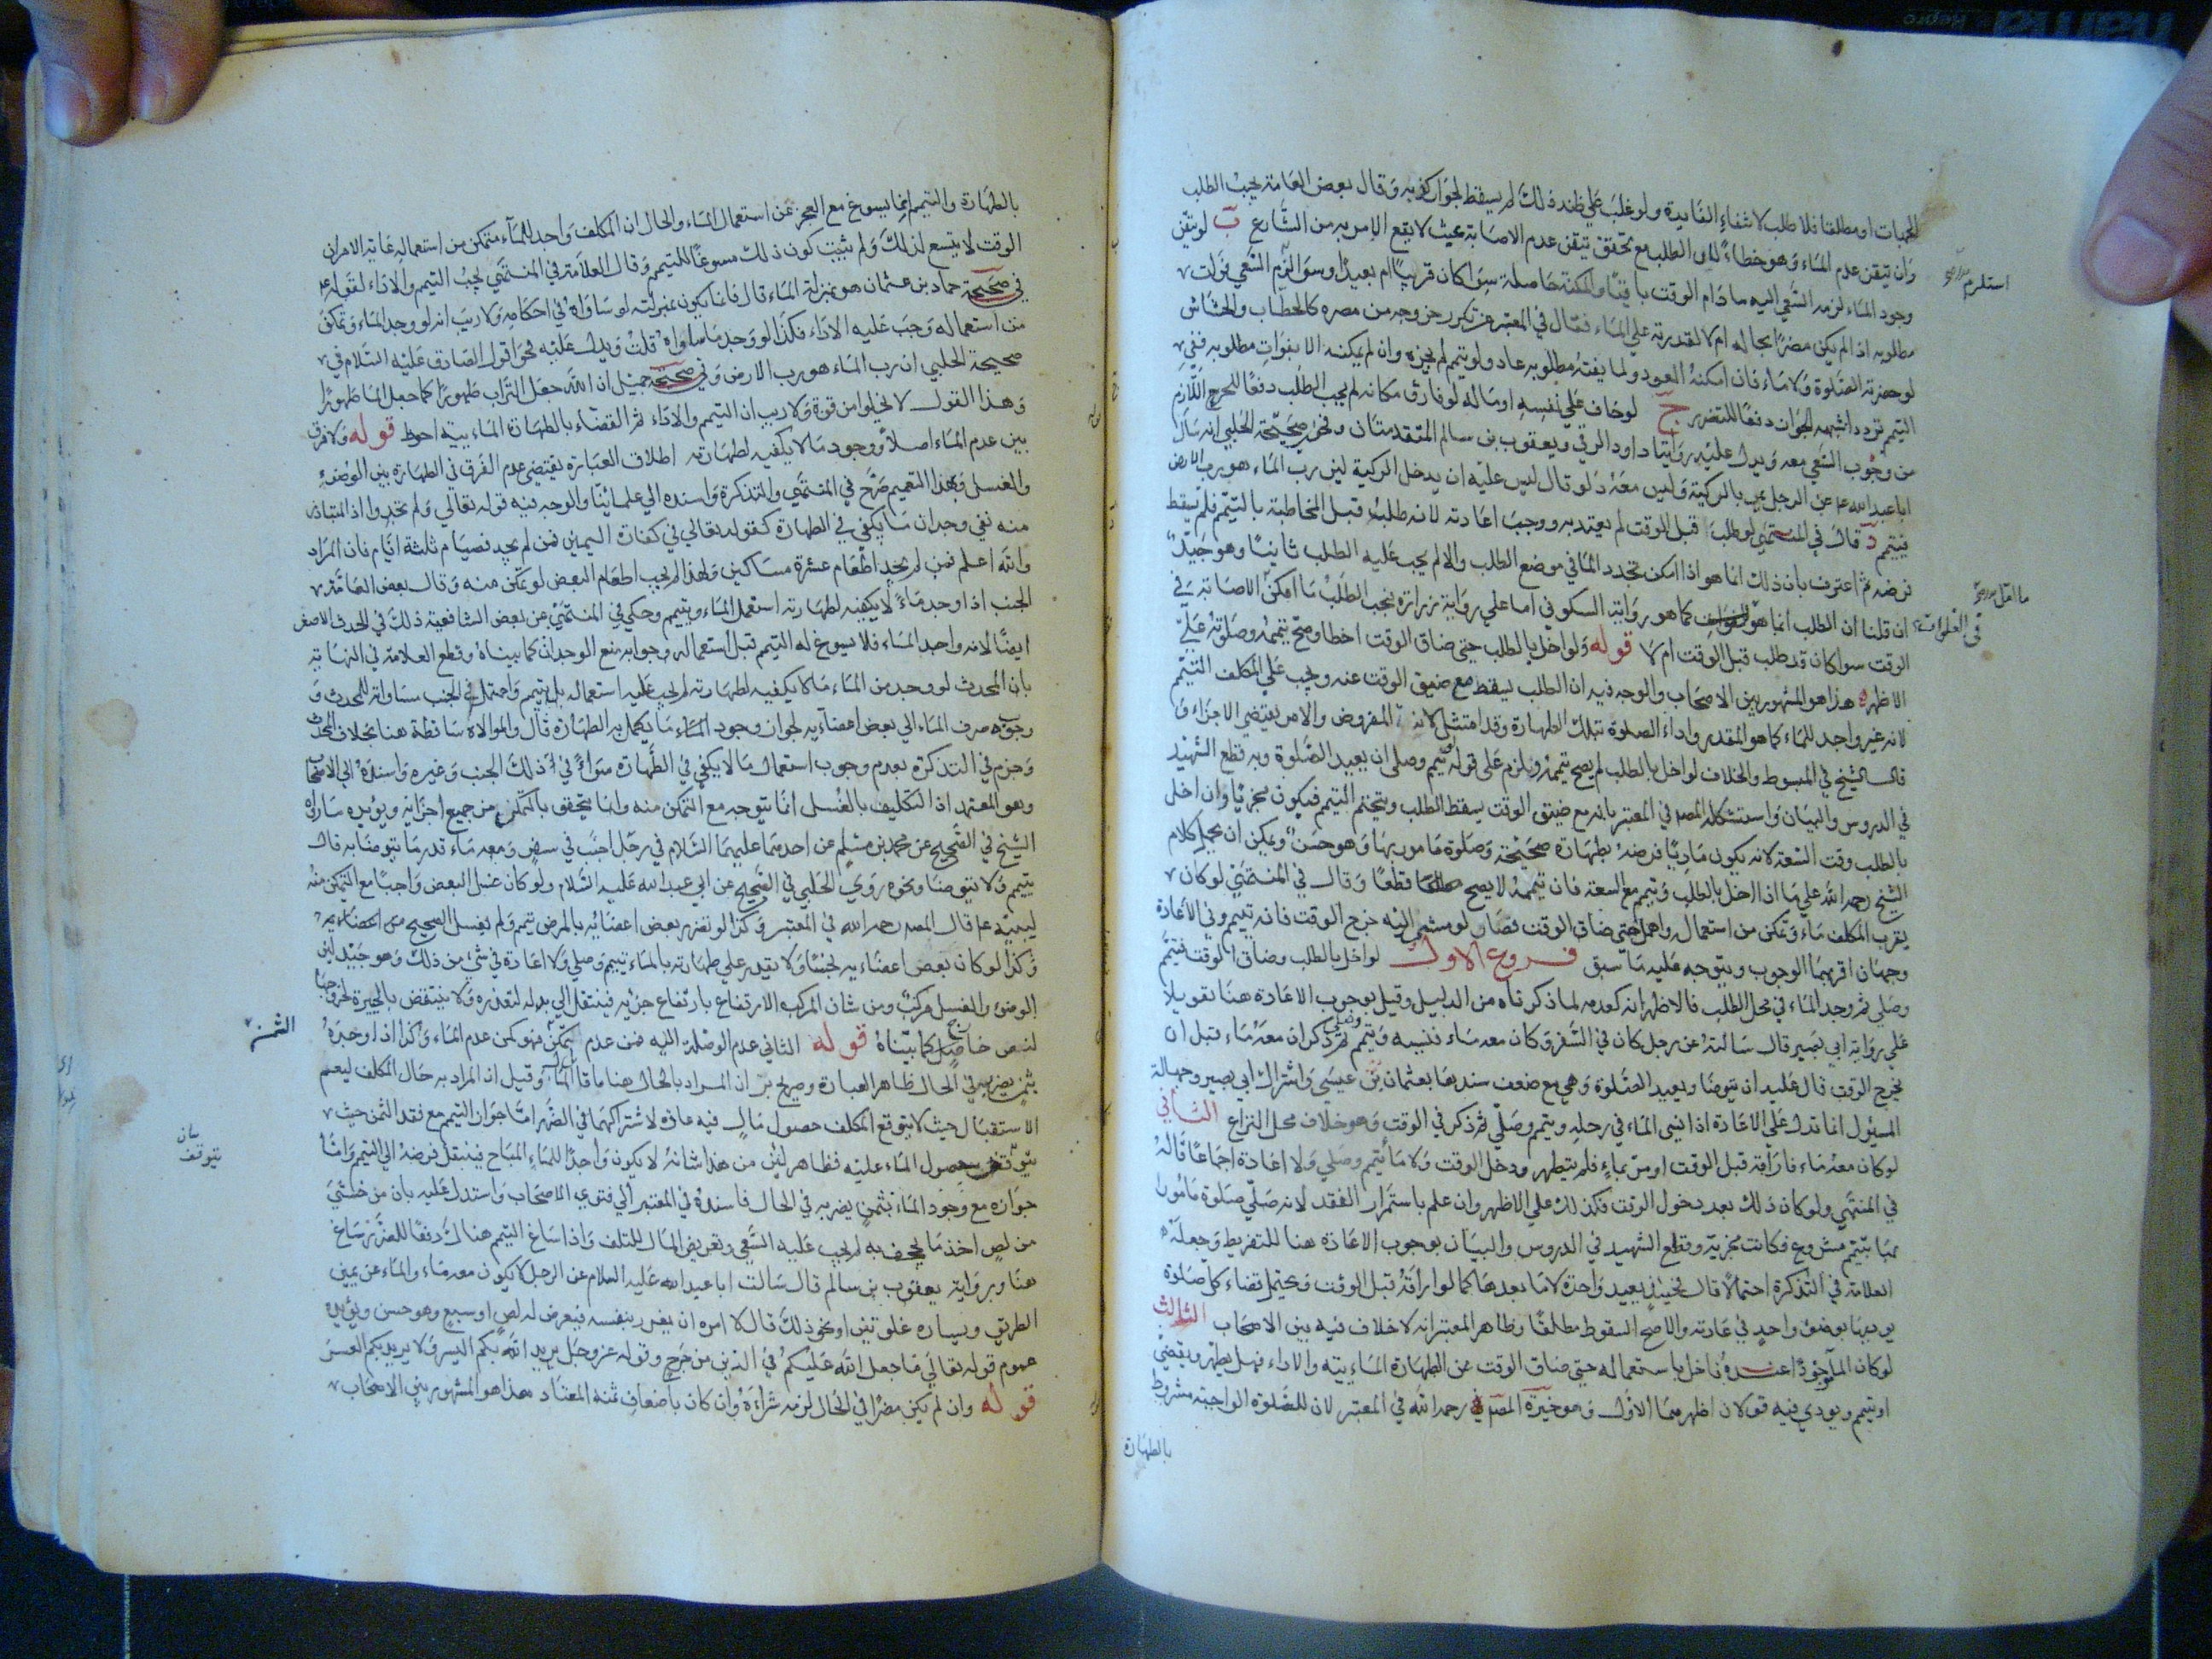 الجهات او مطلقا فلا طلب لانتفاء الفايدة ولو غلب علي ظنه ذلك لم يسقط لجواز كذبه وقال بعض العامة يجب الطلب
وان تيقن عدم الماء وهو خطاء لان الطلب مع تحقق تيقن عدم الاصابة عبث لا يقع الامر به من الشارع ب لو تيقن
وجود الماء لزمه السعي اليه ما دام الوقت باقيا والمكنة حاصلة سواء كان قريبا ام بعيدا وسواء
مطلوبه اذا لم يكن مضرا بحاله ام لا لقدرته علي الماء فقال في المعتبر من تكرر خروجه من مصره كالحطاب والحشاش
لو حضرته الصلوة ولا ماء فان امكنه العود ولما يفته مطلوبه عاد ولو تيمم لم يجزه وان لم يمكنه الا بفوات مطلوبه ففي
التيمم تردد اشبهه الجواز دفعا للضرر ج لو خاف علي نفسه او ماله لو فارق مكانه لم يجب الطلب دفعا للحرج اللازم
من وجوب السعي معه ويدل عليه روايتا داود الرقي ويعقوب بن سالم المتقدمتان ونحوه صحيحة الحلبي انه سأل
ابا عبد الله ع عن الرجل يمر بالركية وليس معه دلو قال ليس عليه ان يدخل الركية لان رب الماء هو رب الارض
فيتيمم د قال في المنتهي لو طلب قبل الوقت لم يعتد به ووجب اعادته لانه طلب قبل المخاطبة بالتيمم فلم يسقط
فرضه ثم اعترف بان ذلك انما هو اذا امكن تجدد الماء في موضع الطلب والا لم يجب عليه الطلب ثانيا وهو جيد
ان قلنا ان الطلب انما هو كما هو رواية السكوني اما علي رواية زرارة يجب الطلب ما امكن الاصابة في
الوقت سواء كان قد طلب قبل الوقت ام لا قوله ولو اخل بالطلب حتي ضاق الوقت اخطا وصح تيممه وصلوته علي
الاظهر هذا هو المشهور بين الاصحاب والوجه فيه ان الطلب يسقط مع ضيق الوقت عنه ويجب علي المكلف التيمم
لانه غير واجد للماء كما هو المقدر واداء الصلوة بتلك الطهارة وقد امتثل لانه المفروض والامر يقتضي الاجزاء و
قال الشيخ في المبسوط والخلاف لو اخل بالطلب لم يصح تيممه ويلزم علي قوله لو تيمم وصلي ان يعيد الصلوة وبه قطع الشهيد
في الدروس والبيان واستشكله المصـ في المعتبر بانه مع ضيق الوقت يسقط الطلب ويتحتم التيمم فيكون مجزيا وان اخل
بالطلب وقت السعة لانه يكون مأديا فرضه بطهارة صحيحة وصلوة مامور بها وهو حسن ويمكن ان يحمل كلام
الشيخ رحمه الله علي ما اذا اخل بالطلب وتيمم مع السعة فان تيممه لا يصح قطعا وقال في المنتهي لو كان
بقرب المكلف ماء وتمكن من استعماله واهمل حتي ضاق الوقت فصار لو مشي اليه خرج الوقت فانه تيمم وفي الاعادة
وجهان اقربهما الوجوب ويتوجه عليه ما سبق فروع الاول لو اخل بالطلب وضاق الوقت فتيمم
وصلي ثم وجد الماء في محل الطلب فالاظهر انه كعدمه لما ذكرناه من الدليل وقيل بوجوب الاعادة هنا تعويلا
علي رواية ابي بصير قال سالته عن رجل كان في السفر وكان معه ماء فنسيه وتيمم وصلي ثم ذكر ان معه ماء قبل ان
يخرج الوقت قال عليه ان يتوضا ويعيد الصلوة وهي مع ضعف سندها بعثمان بن عيسي واشتراك ابي بصير وجهالة
المسئول انما تدل علي الاعادة اذا نسي الماء في رحله وتيمم وصلي ثم ذكر في الوقت وهو خلاف محل النزاع الثاني
لو كان معه ماء فاراقه قبل الوقت او مر بماء فلم يتطهر ودخل الوقت ولا ماء تيمم وصلي ولا اعادة اجماعا قاله
في المنتهي ولو كان ذلك بعد دخول الوقت فكذلك علي الاظهر وان علم باستمرار الفقد لانه صلي صلوة مامورا
بها بتيمم مشروع فكانت مجزية وقطع الشهيد في الدروس والبيان بوجوب الاعادة هنا للتفريط وجعله
العلامة في التذكرة احتمالا قال فحينئذ يعيد واحدة لا ما بعدها كما لو اراقه قبل الوقت ويحتمل قضاء كل صلوة
يوديها بوضوء واحد في عادته والاصح السقوط مطلقا وظاهر المعتبر انه لا خلاف فيه بين الاصحاب الثالث
لو كان الماء موجودا عنده فاخل باستعماله حتي ضاق الوقت عن الطهارة المائية والاداء فهل يطهر ويقضي
او يتيمم ويودي فيه قولان اظهرهما الاول وهو خيرة المصـ رحمه الله في المعتبر لان للصلوة الواجبة مشروط
بالطهارة
استلزم
في الفلوات
بالطهارة والتيمم انما يسوغ مع العجز عن استعمال الماء والحال ان المكلف واجد للماء متمكن من استعماله غاية الامر ان
الوقت لا يتسع لذلك ولم يثبت كون ذلك مسوغا للتيمم وقال العلامة في المنتهي يجب التيمم والاداء لقوله ع
في صحيحة حماد بن عثمان هو بمنزلة الماء قال فانما يكون بمنزلته لو ساواه في احكامه ولا ريب انه لو وجد الماء وتمكن
من استعماله وجب عليه الاداء فكذا لو وجد ما ساواه قلت ويدل عليه فحوي قول الصادق عليه السلام في
صحيحة الحلبي ان رب الماء هو رب الارض وفي صحيحة جميل ان الله جعل التراب طهورا كما جعل الماء طهورا
وهذا القول لا يخلوا من قوة ولا ريب ان التيمم والاداء ثم القضاء بالطهارة المائية احوط قوله ولا فرق
بين عدم الماء اصلا ووجود ما لا يكفيه لطهارته اطلاق العبارة يقتضي عدم الفرق في الطهارة بين الوضوء
والغسل وبهذا التعميم صرح في المنتهي والتذكرة واسنده الي علمائنا والوجه فيه قوله تعالي ولم تجدوا اذ المتبادر
منه نفي وجدان ما يكفي في الطهارة كقوله تعالي في كفارة اليمين فمن لم يجد فصيام ثلثة ايام فان المراد
والله اعلم فمن لم يجد اطعام عشرة مساكين ولهذا لم يجب اطعام البعض لو تمكن منه وقال بعض العامة
الجنب اذا وجد ماء لا يكفيه لطهارته استعمل الماء وتيمم وحكي في المنتهي عن بعض الشافعية ذلك في الحدث الاصغر
ايضا لانه واجد الماء فلا يسوغ له التيمم قبل استعماله وجوابه منع الوجدان كما بيناه وقطع العلامة في النهاية
بان المحدث لو وجد من الماء ما لا يكفيه لطهارته لم يجب عليه استعماله بل تيمم واحتمل في الجنب مساواته للمحدث و
وجوب صرف الماء الي بعض اعضاءه لجواز وجود الماء ما يكمل به الطهارة قال والموالاة ساقطة هنا بخلاف المحدث
وجزم في التذكرة بعدم وجوب استعمال ما لا يكفي في الطهارة سواء في ذلك الجنب وغيره واسنده الي الاصحاب
وهو المعتمد اذ التكليف بالغسل انما يتوجه مع التمكن منه وانما يتحقق بالتمكن من جميع اجزائه ويؤيده ما رواه
الشيخ في الصحيح عن محمد بن مسلم عن احدهما عليهما السلام في رجل اجنب في سفر ومعه ماء قدر ما يتوضا به قال
يتيمم ولا يتوضا ونحوه روي الحلبي في الصحيح عن ابي عبد الله عليه السلام ولو كان غسل البعض واجبا مع التمكن منه
لبينه ع قال المصـ رحمه الله في المعتبر وكذا لو تضرر بعض اعضائه بالمرض تيمم ولم يغسل الصحيح من اعضاءه
وكذا لو كان بعض اعضاءه نجسا ولا يقدر علي طهارته بالماء تيمم وصلي ولا اعادة في شيء من ذلك وهو جيد لان
الوضوء والغسل مركب ومن شان المركب الارتفاع بارتفاع جزئه فينتقل الي بدله لتعذره ولا ينتقض بالجبيرة لخروجها
لنص خاص كما بيناه قوله الثاني عدم الوصلة اليه فمن عدم الثمن فهو كمن عدم الماء وكذا اذا وجده
بثمن يضر به في الحال ظاهر العبارة وصريح ان المراد بالحال هنا ما قابل المآل وقيل ان المراد به حال المكلف ليعم
الاستقبال حيث لا يتوقع المكلف حصول مال فيه عادة لاشتراكهما في الضرر اما جواز التيمم مع فقد الثمن حيث
يتوقف حصول الماء عليه فظاهر لان من هذا شانه لا يكون واجدا للماء المباح فينتقل فرضه الي التيمم واما
جوازه مع وجود الماء بثمن يضر به في الحال فاسنده في المعتبر الي فتوي الاصحاب واستدل عليه بان من خشي
من لص اخذ ما يجحف به لم يجب عليه السعي وتعريض المال للتلف واذا ساغ التيمم هناك دفعا للضرر ساغ
هنا وبرواية يعقوب بن سالم قال سالت ابا عبد الله عليه السلام عن الرجل لا يكون معه ماء والماء عن يمين
الطريق ويساره غلوتين او نحو ذلك قال لا امره ان يغرر بنفسه فيعرض له لص او سبع وهو حسن ويؤيده
عموم قوله تعالي ما جعل الله عليكم في الدين من حرج وقوله عز وجل يريد الله بكم اليسر ولا يريد بكم العسر
قوله وان لم يكن مضرا في الحال لزمه شراءه وان كان باضعاف ثمنه المعتاد هذا هو المشهور بين الاصحاب
الثمن
يتوقف